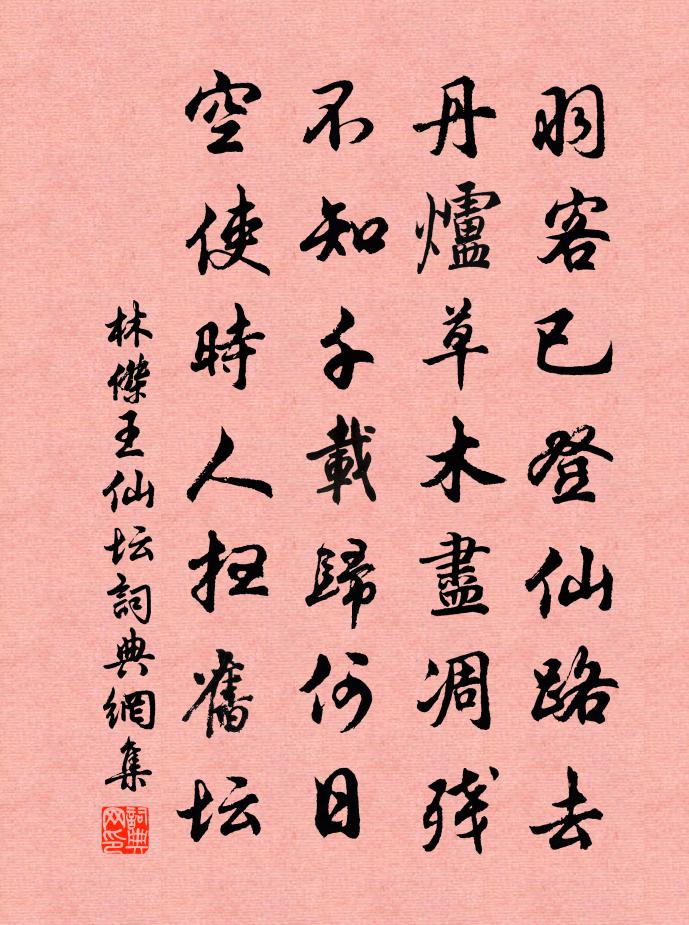 羽客已登仙路去
丹爐草木盡凋残
不知千載歸何日
空使時人扫舊坛
林傑王仙坛詞典網集
詞典
网印